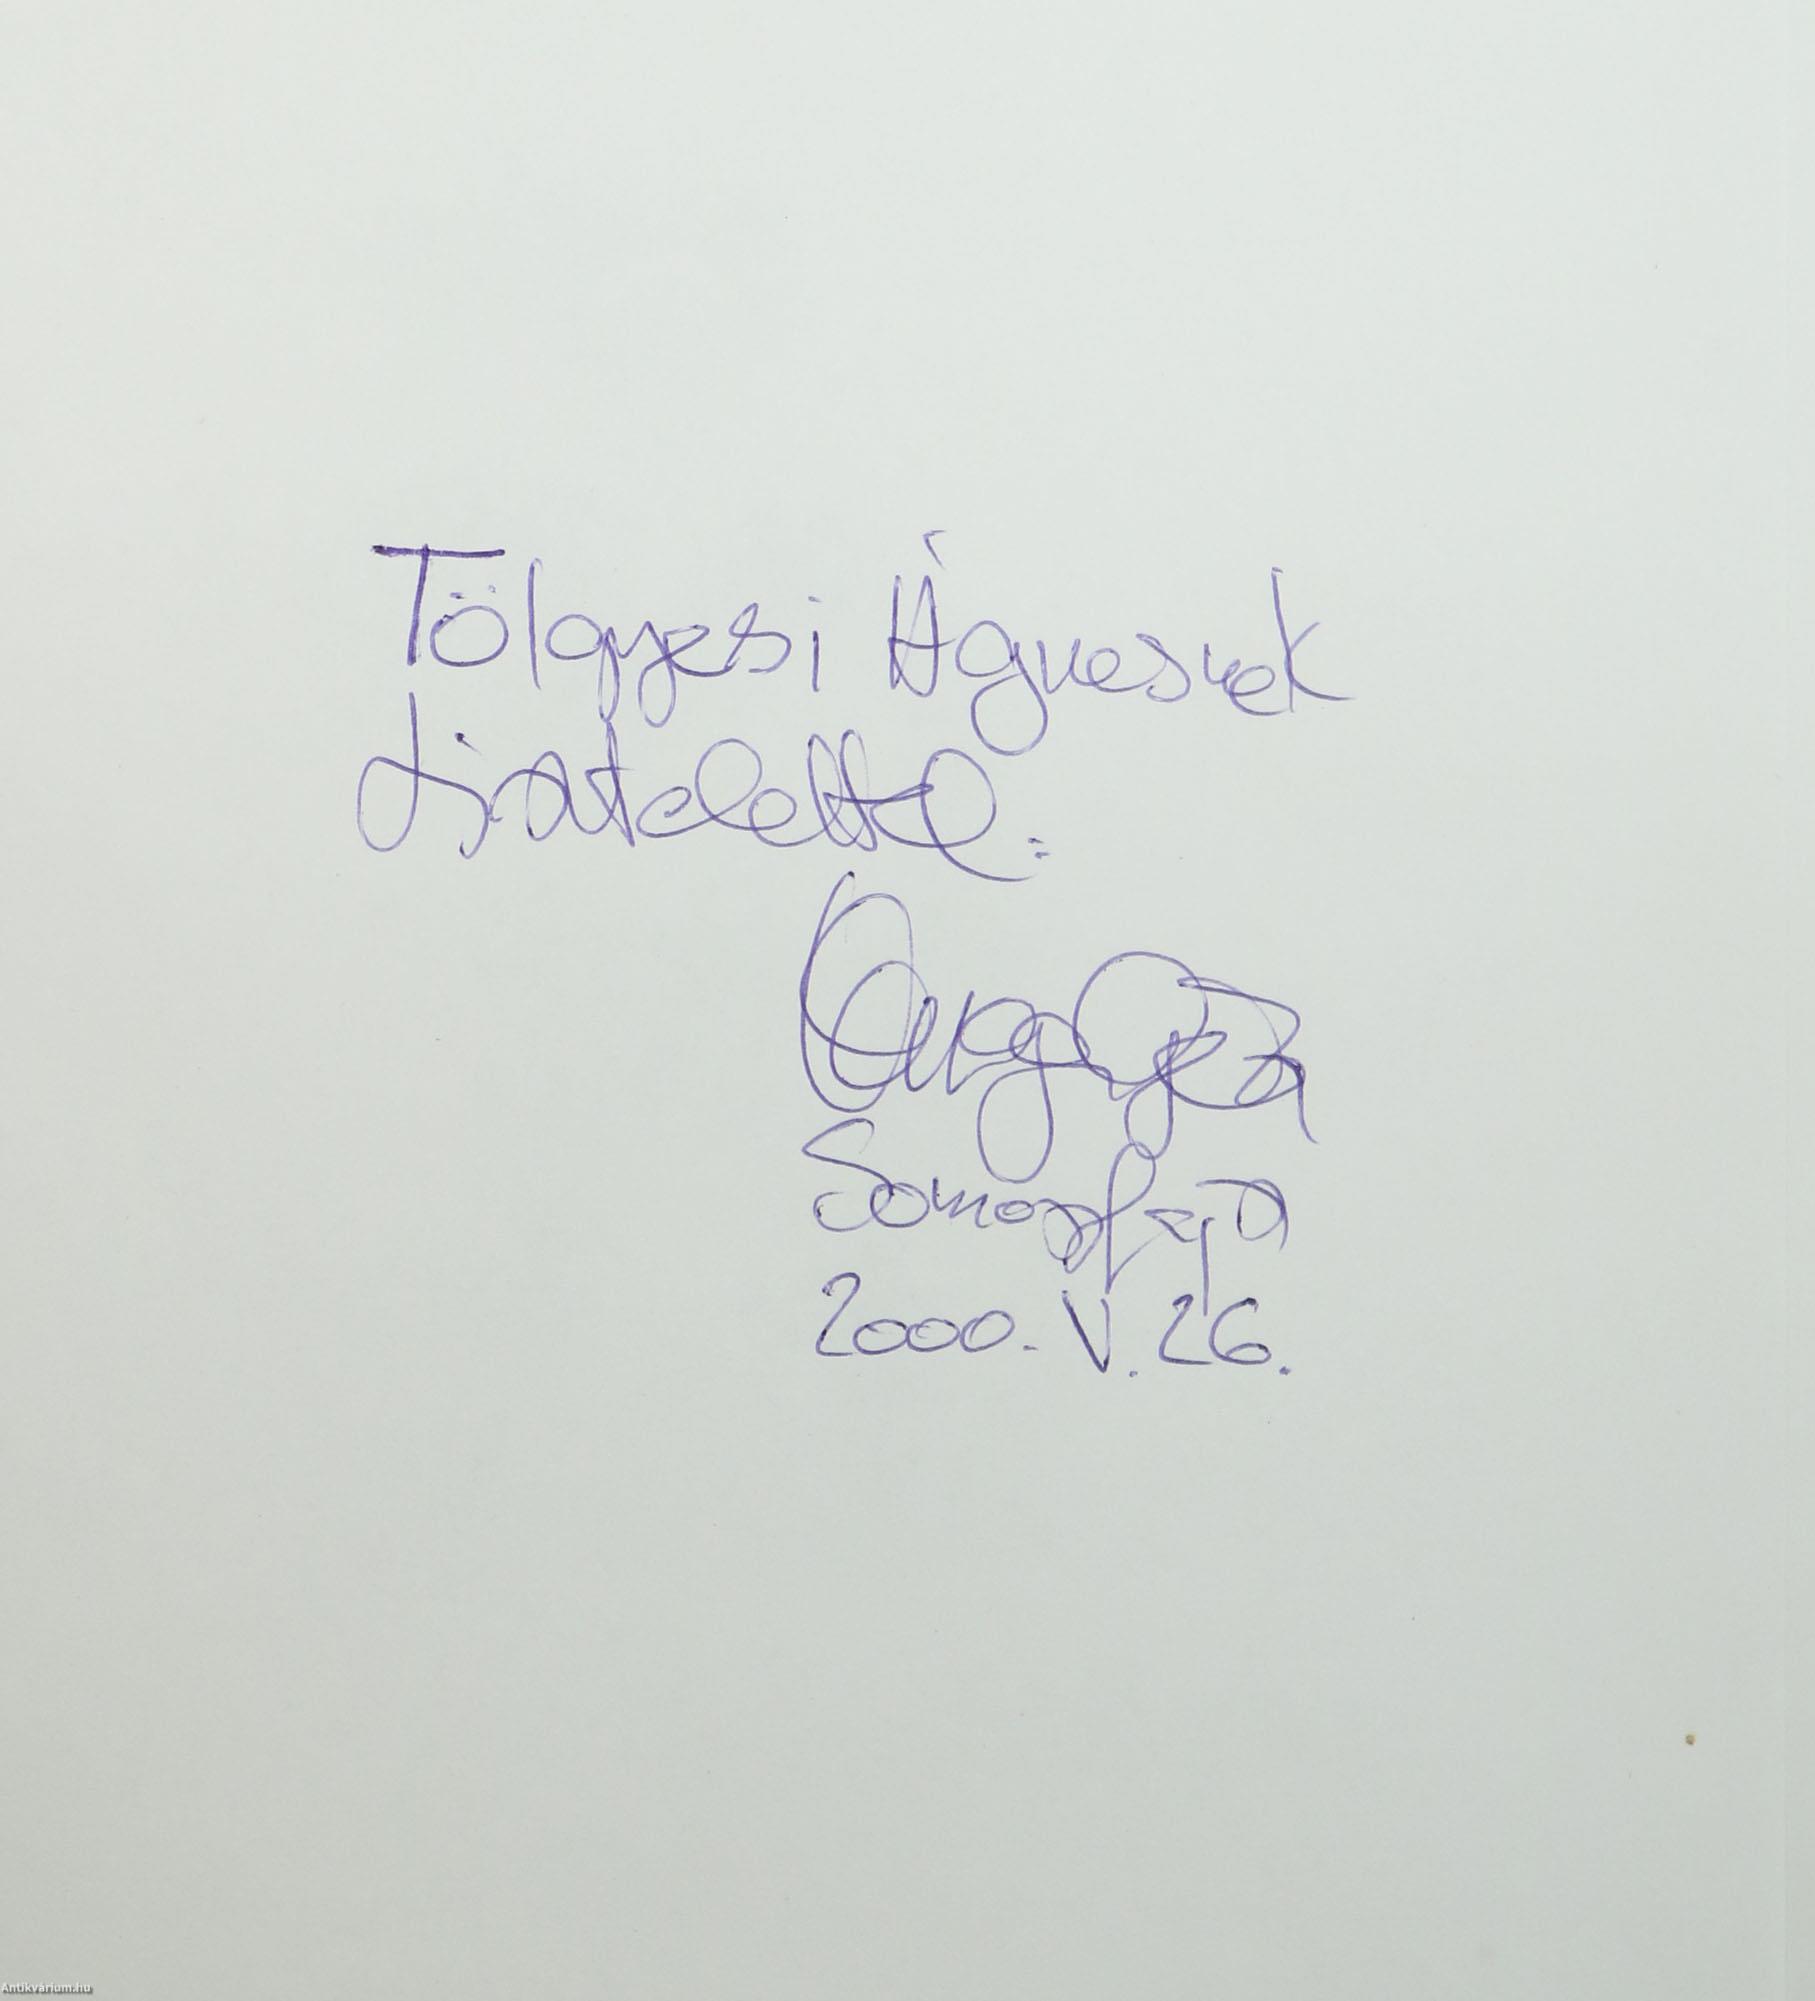 Tölgyesi Ágnesnek
tisztelettel:
2000. V. 26.
Antikvárium.hu